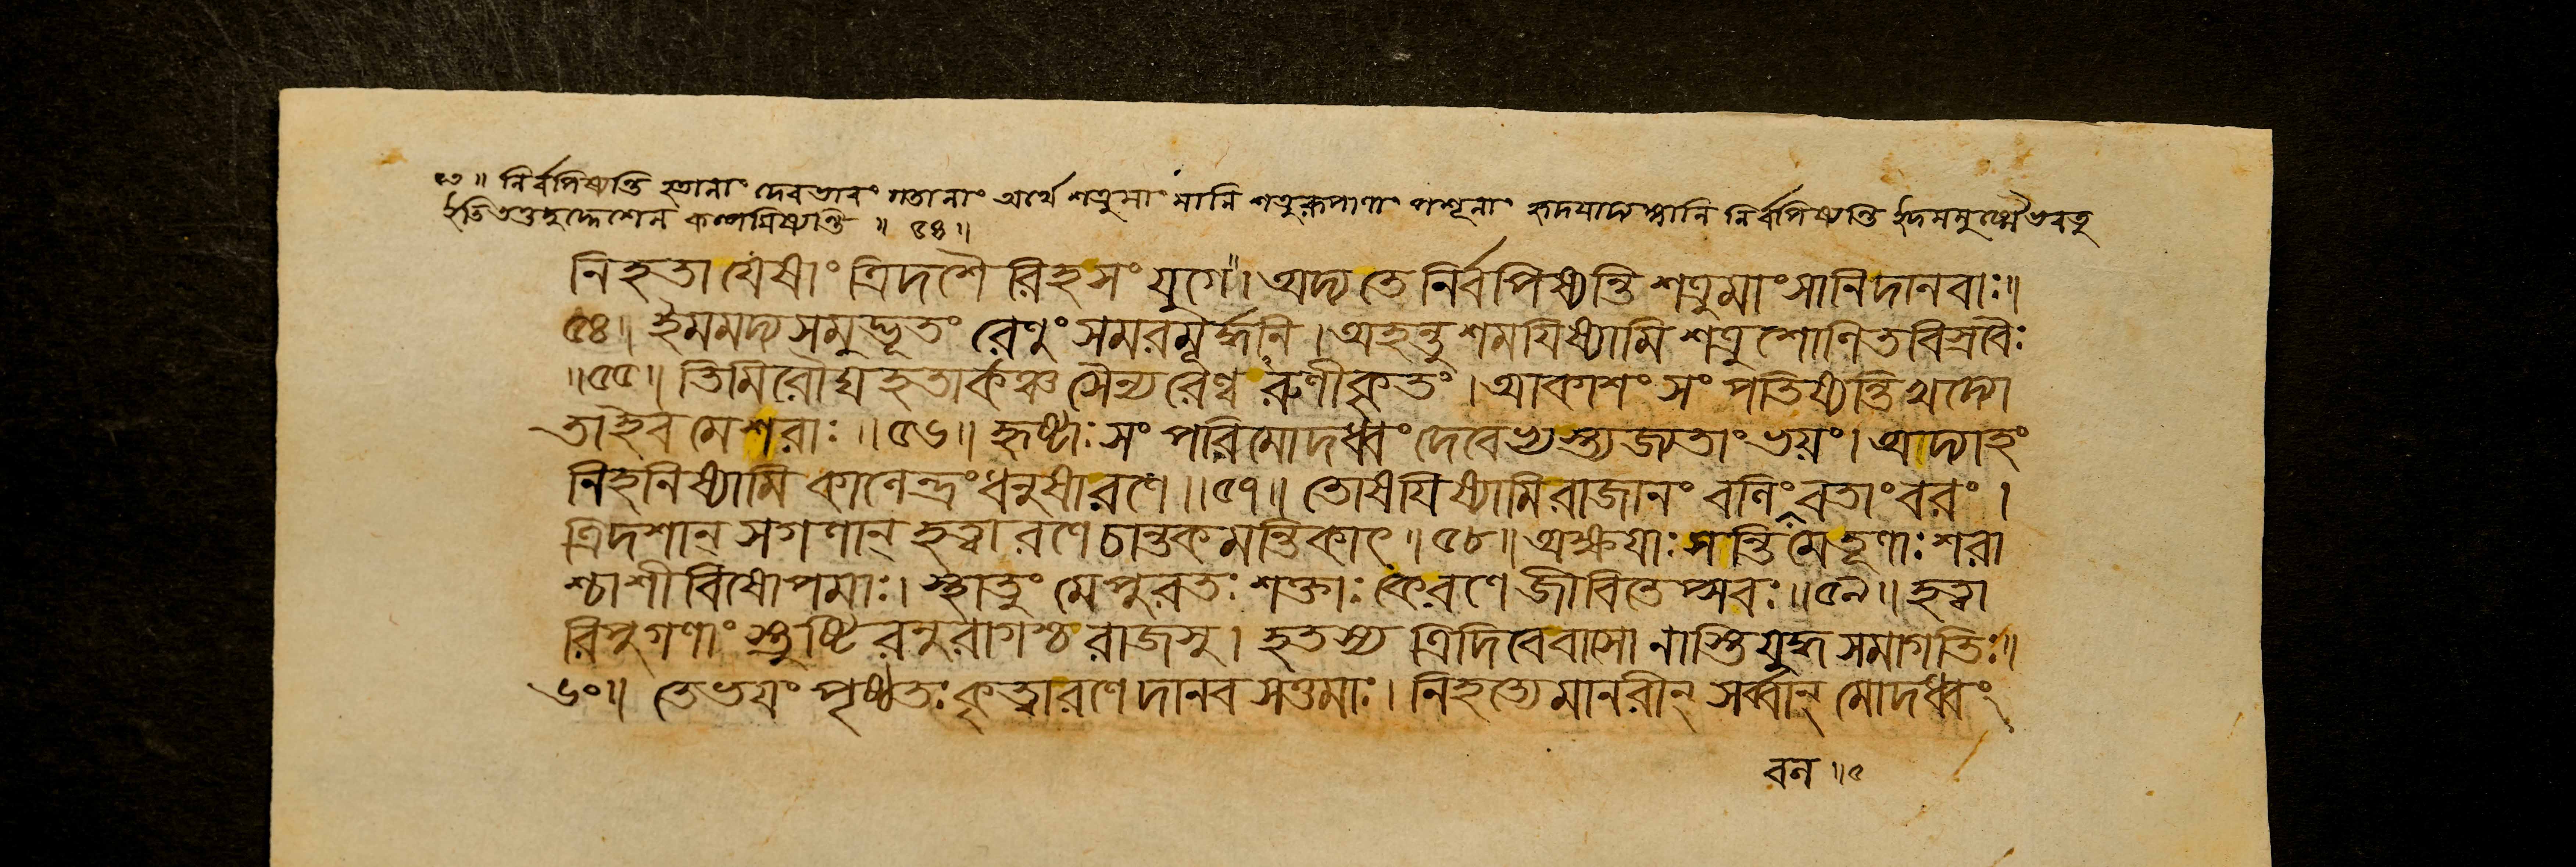 ৫৩ ॥ নির্বপিষ্যন্তি হতানাং দেবভাবং গতানাং অর্থে শত্রুমাংসানি শত্রুরূপাণাং পশূনাং হৃদয়াদ্যঙ্গানি নির্বপিষ্যন্তি ইদমমুষ্মৈ ভবতু
ইতি তত্তদুদ্দেশেন কল্পয়িষ্যন্তি ॥ ৫৪ ॥
নিহতা যেষাং ত্রিদশৈরিহ সংযুগে । অদ্য তে নির্বপিষ্যন্তি শত্রুমাংসানি দানবাঃ ॥
৫৪ ॥ ইমমদ্য সমুদ্ভূতং রেণুং সমরমূর্দ্ধনি । অহন্তু শময়িষ্যামি শত্রুশোণিতবিস্রবৈঃ
॥ ৫৫ ॥ তিমিরৌঘহতার্কঞ্চ সৈন্যরেণ্বরুণীকৃতং । আকাশং সংপতিষ্যন্তি খদ্যো
তাইব মে শরাঃ ॥ ৫৬ ॥ হৃষ্টাঃ সংপরিমোদধ্বং দেবেভ্যস্ত্যজ্যতাং ভয়ং । অদ্যাহং
নিহনিষ্যামি কালেন্দ্রং ধনুষা রণে ॥ ৫৭ ॥ তোষয়িষ্যামি রাজানং বলিং বলবতাং বরং ।
ত্রিদশান্ সগণান্ হত্বা রণে চান্তকমন্তিকাৎ ॥ ৫৮ ॥ অক্ষয়াঃ সন্তি মে তূণাঃ শরা
শ্চাশীবিষোপমাঃ । স্থাতুং মে পুরতঃ শক্তাঃ কে রণে জীবিতেপ্সবঃ ॥ ৫৯ ॥ হত্বা
রিপুগণাং স্তুষ্টিরনুরাগশ্চ রাজসু । হতস্য ত্রিদিবে বাসো নাস্তি যুদ্ধসমা গতিঃ ॥
৬০ ॥ তে ভয়ং পৃষ্ঠতঃ কৃত্বা রণে দানবসত্তমাঃ । নিহত্যেমানরীন্ সর্ব্বান্ মোদধ্বং
বন ॥ ৫